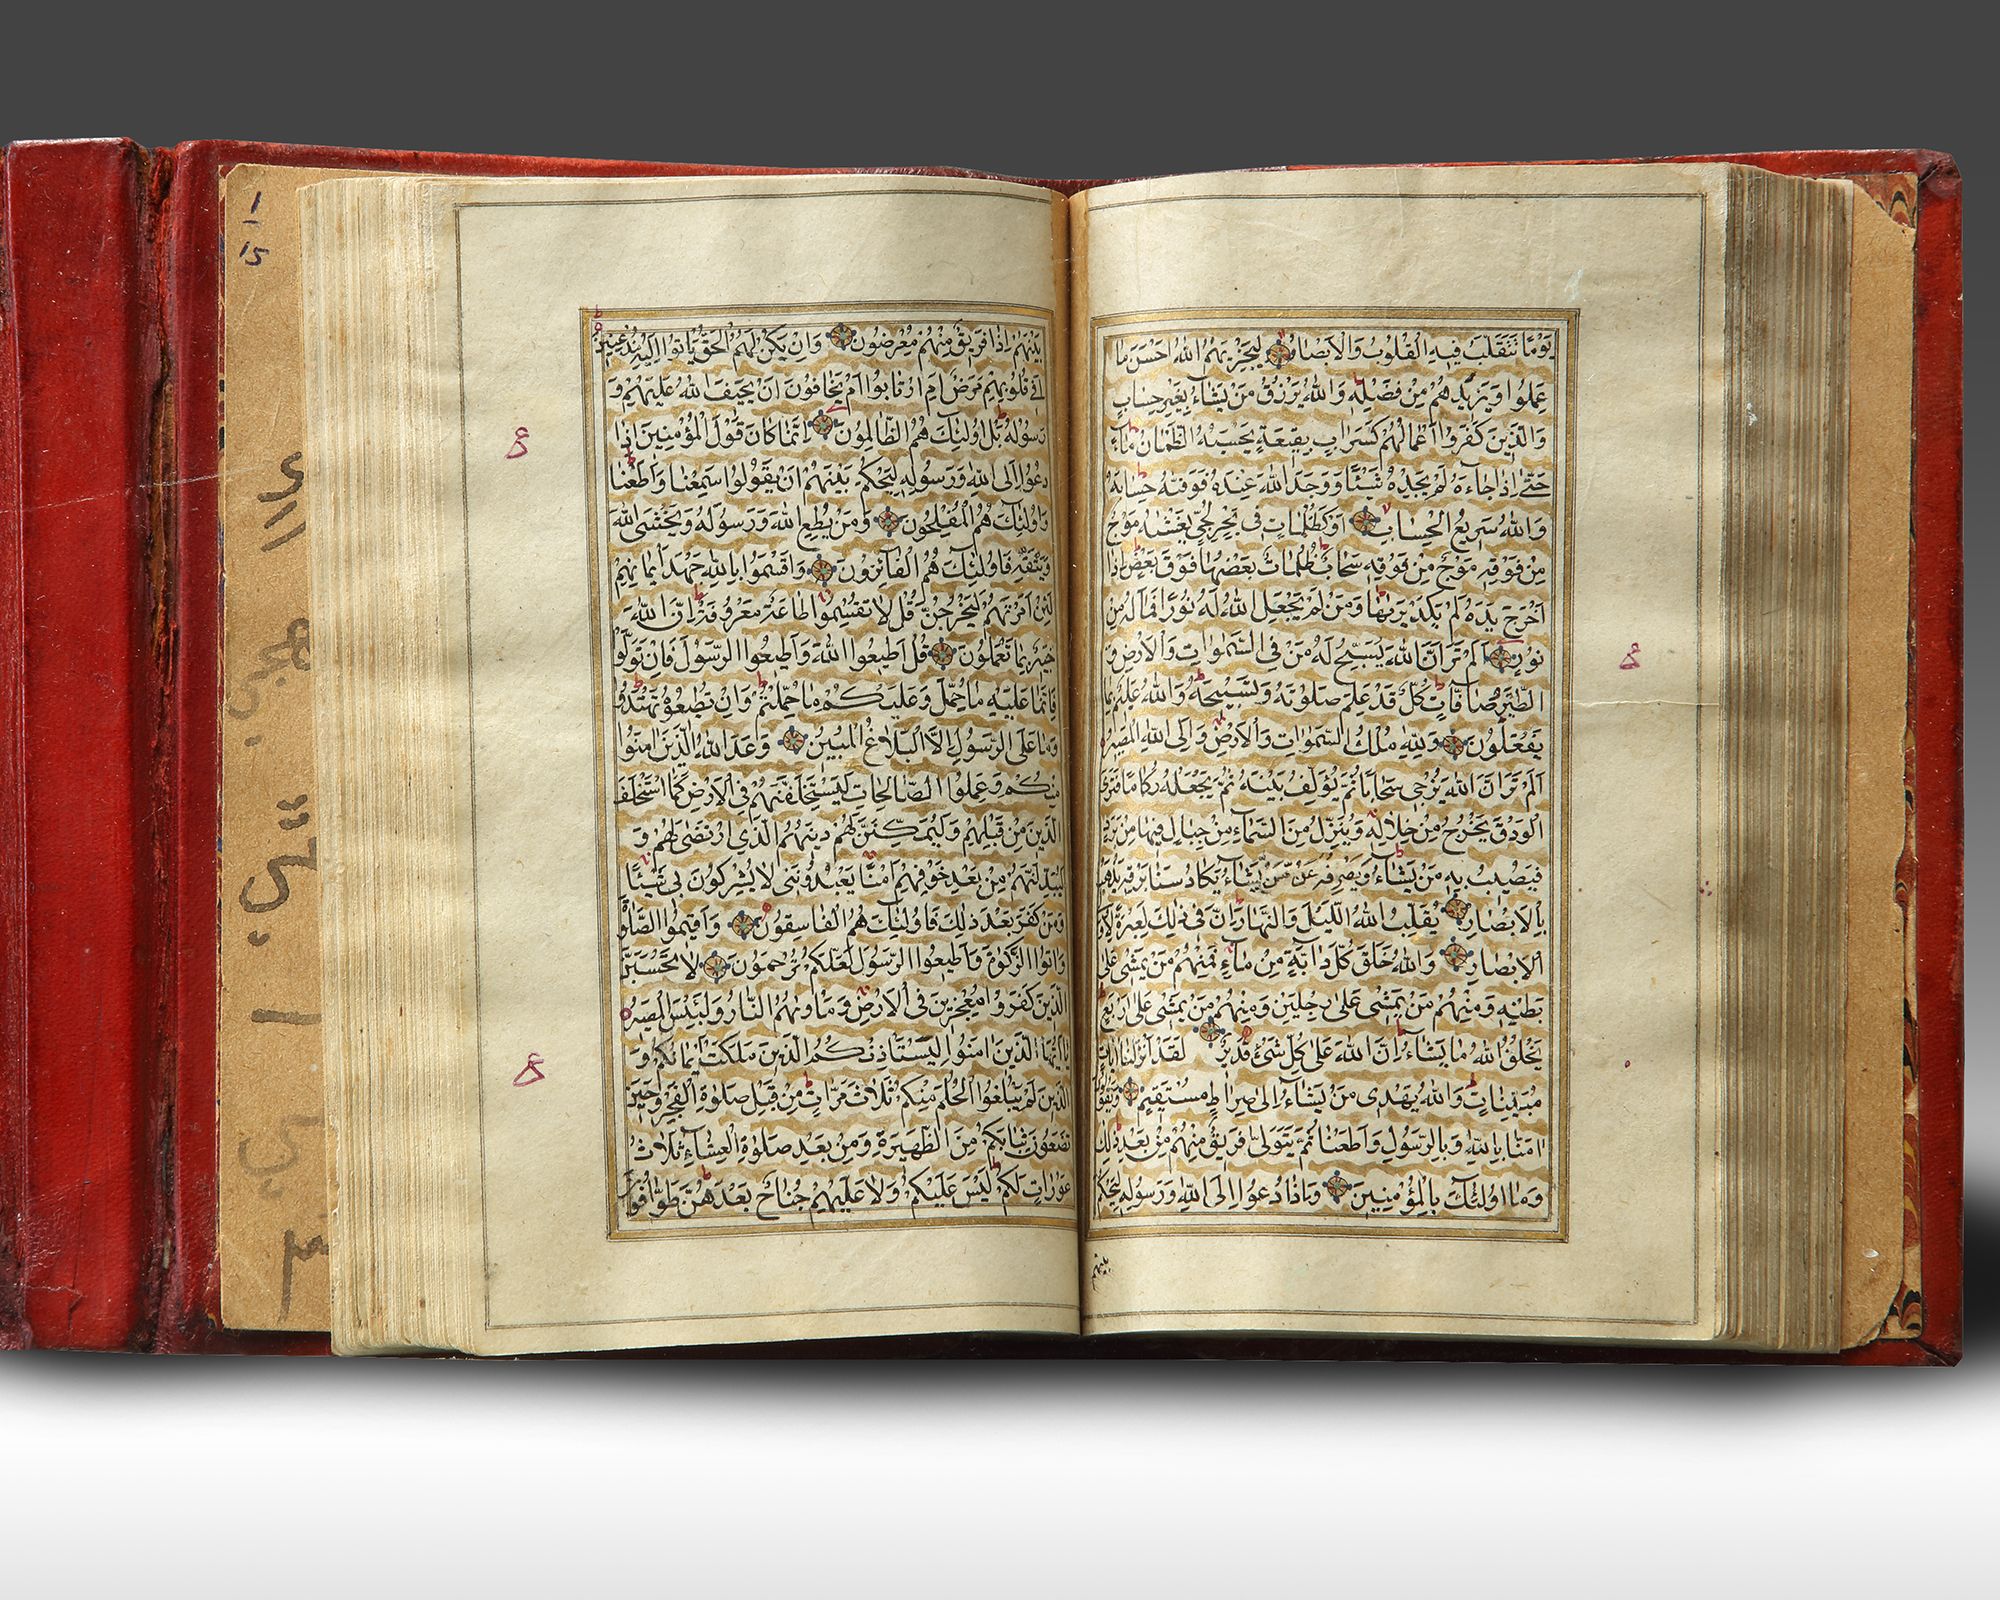 يَوْمًا تَتَقَلَّبُ فِيهِ الْقُلُوبُ وَالْاَبْصَارُ لِيَجْزِيَهُمُ اللهُ اَحْسَنَ مَا
عَمِلُوا وَيَزِيدَهُمْ مِنْ فَضْلِهِ وَاللهُ يَرْزُقُ مَنْ يَشَاءُ بِغَيْرِ حِسَابٍ
وَالَّذِينَ كَفَرُوا اَعْمَالُهُمْ كَسَرَابٍ بِقِيعَةٍ يَحْسَبُهُ الظَّمْاٰنُ مَاءً
حَتّٰى اِذَا جَاءَهُ لَمْ يَجِدْهُ شَيْئًا وَوَجَدَ اللهَ عِنْدَهُ فَوَفّٰيهُ حِسَابَهُ
وَاللهُ سَرِيعُ الْحِسَابِ اَوْ كَظُلُمَاتٍ فِي بَحْرٍ لُجِّيٍّ يَغْشٰيهُ مَوْجٌ
مِنْ فَوْقِهِ مَوْجٌ مِنْ فَوْقِهِ سَحَابٌ ظُلُمَاتٌ بَعْضُهَا فَوْقَ بَعْضٍ اِذَا
اَخْرَجَ يَدَهُ لَمْ يَكَدْ يَرٰيهَا وَمَنْ لَمْ يَجْعَلِ اللهُ لَهُ نُورًا فَمَا لَهُ مِنْ
نُورٍ اَلَمْ تَرَ اَنَّ اللهَ يُسَبِّحُ لَهُ مَنْ فِي السَّمٰوَاتِ وَالْاَرْضِ وَ
الطَّيْرُ صَافَّاتٍ كُلٌّ قَدْ عَلِمَ صَلٰوتَهُ وَتَسْبِيحَهُ وَاللهُ عَلِيمٌ بِمَا
يَفْعَلُونَ وَلِلّٰهِ مُلْكُ السَّمٰوَاتِ وَالْاَرْضِ وَاِلَى اللهِ الْمَصِيرُ
اَلَمْ تَرَ اَنَّ اللهَ يُزْجِي سَحَابًا ثُمَّ يُؤَلِّفُ بَيْنَهُ ثُمَّ يَجْعَلُهُ رُكَامًا فَتَرَى
الْوَدْقَ يَخْرُجُ مِنْ خِلَالِهِ وَيُنَزِّلُ مِنَ السَّمَاءِ مِنْ جِبَالٍ فِيهَا مِنْ بَرَدٍ
فَيُصِيبُ بِهِ مَنْ يَشَاءُ وَيَصْرِفُهُ عَنْ مَنْ يَشَاءُ يَكَادُ سَنَا بَرْقِهِ يَذْهَبُ
بِالْاَبْصَارِ يُقَلِّبُ اللهُ اللَّيْلَ وَالنَّهَارَ اِنَّ فِي ذٰلِكَ لَعِبْرَةً لِاُولِي
الْاَبْصَارِ وَاللهُ خَلَقَ كُلَّ دَابَّةٍ مِنْ مَاءٍ فَمِنْهُمْ مَنْ يَمْشِي عَلٰى
بَطْنِهِ وَمِنْهُمْ مَنْ يَمْشِي عَلٰى رِجْلَيْنِ وَمِنْهُمْ مَنْ يَمْشِي عَلٰى اَرْبَعٍ
يَخْلُقُ اللهُ مَا يَشَاءُ اِنَّ اللهَ عَلٰى كُلِّ شَيْءٍ قَدِيرٌ لَقَدْ اَنْزَلْنَا اٰيَاتٍ
مُبَيِّنَاتٍ وَاللهُ يَهْدِي مَنْ يَشَاءُ اِلٰى صِرَاطٍ مُسْتَقِيمٍ وَيَقُولُونَ
اٰمَنَّا بِاللهِ وَبِالرَّسُولِ وَاَطَعْنَا ثُمَّ يَتَوَلّٰى فَرِيقٌ مِنْهُمْ مِنْ بَعْدِ ذٰلِكَ
وَمَا اُولٰئِكَ بِالْمُؤْمِنِينَ وَاِذَا دُعُوا اِلَى اللهِ وَرَسُولِهِ لِيَحْكُمَ
بينهم
بَيْنَهُمْ اِذَا فَرِيقٌ مِنْهُمْ مُعْرِضُونَ وَاِنْ يَكُنْ لَهُمُ الْحَقُّ يَاْتُوا اِلَيْهِ مُذْعِنِينَ
اَفِي قُلُوبِهِمْ مَرَضٌ اَمِ ارْتَابُوا اَمْ يَخَافُونَ اَنْ يَحِيفَ اللهُ عَلَيْهِمْ وَ
رَسُولُهُ بَلْ اُولٰئِكَ هُمُ الظَّالِمُونَ اِنَّمَا كَانَ قَوْلَ الْمُؤْمِنِينَ اِذَا
دُعُوا اِلَى اللهِ وَرَسُولِهِ لِيَحْكُمَ بَيْنَهُمْ اَنْ يَقُولُوا سَمِعْنَا وَاَطَعْنَا
وَاُولٰئِكَ هُمُ الْمُفْلِحُونَ وَمَنْ يُطِعِ اللهَ وَرَسُولَهُ وَيَخْشَى اللهَ
وَيَتَّقْهِ فَاُولٰئِكَ هُمُ الْفَائِزُونَ وَاَقْسَمُوا بِاللهِ جَهْدَ اَيْمَانِهِمْ
لَئِنْ اَمَرْتَهُمْ لَيَخْرُجُنَّ قُلْ لَا تُقْسِمُوا طَاعَةٌ مَعْرُوفَةٌ اِنَّ اللهَ
خَبِيرٌ بِمَا تَعْمَلُونَ قُلْ اَطِيعُوا اللهَ وَاَطِيعُوا الرَّسُولَ فَاِنْ تَوَلَّوْا
فَاِنَّمَا عَلَيْهِ مَا حُمِّلَ وَعَلَيْكُمْ مَا حُمِّلْتُمْ وَاِنْ تُطِيعُوهُ تَهْتَدُوا
وَمَا عَلَى الرَّسُولِ اِلَّا الْبَلَاغُ الْمُبِينُ وَعَدَ اللهُ الَّذِينَ اٰمَنُوا
مِنْكُمْ وَعَمِلُوا الصَّالِحَاتِ لَيَسْتَخْلِفَنَّهُمْ فِي الْاَرْضِ كَمَا اسْتَخْلَفَ
الَّذِينَ مِنْ قَبْلِهِمْ وَلَيُمَكِّنَنَّ لَهُمْ دِينَهُمُ الَّذِي ارْتَضٰى لَهُمْ وَ
لَيُبَدِّلَنَّهُمْ مِنْ بَعْدِ خَوْفِهِمْ اَمْنًا يَعْبُدُونَنِي لَا يُشْرِكُونَ بِي شَيْئًا
وَمَنْ كَفَرَ بَعْدَ ذٰلِكَ فَاُولٰئِكَ هُمُ الْفَاسِقُونَ وَاَقِيمُوا الصَّلٰوةَ
وَاٰتُوا الزَّكٰوةَ وَاَطِيعُوا الرَّسُولَ لَعَلَّكُمْ تُرْحَمُونَ لَا تَحْسَبَنَّ
الَّذِينَ كَفَرُوا مُعْجِزِينَ فِي الْاَرْضِ وَمَاْوٰيهُمُ النَّارُ وَلَبِئْسَ الْمَصِيرُ
يَا اَيُّهَا الَّذِينَ اٰمَنُوا لِيَسْتَاْذِنْكُمُ الَّذِينَ مَلَكَتْ اَيْمَانُكُمْ وَ
الَّذِينَ لَمْ يَبْلُغُوا الْحُلُمَ مِنْكُمْ ثَلَاثَ مَرَّاتٍ مِنْ قَبْلِ صَلٰوةِ الْفَجْرِ وَحِينَ
تَضَعُونَ ثِيَابَكُمْ مِنَ الظَّهِيرَةِ وَمِنْ بَعْدِ صَلٰوةِ الْعِشَاءِ ثَلَاثُ
عَوْرَاتٍ لَكُمْ لَيْسَ عَلَيْكُمْ وَلَا عَلَيْهِمْ جُنَاحٌ بَعْدَهُنَّ طَوَّافُونَ
ع
ع
ع
1
15